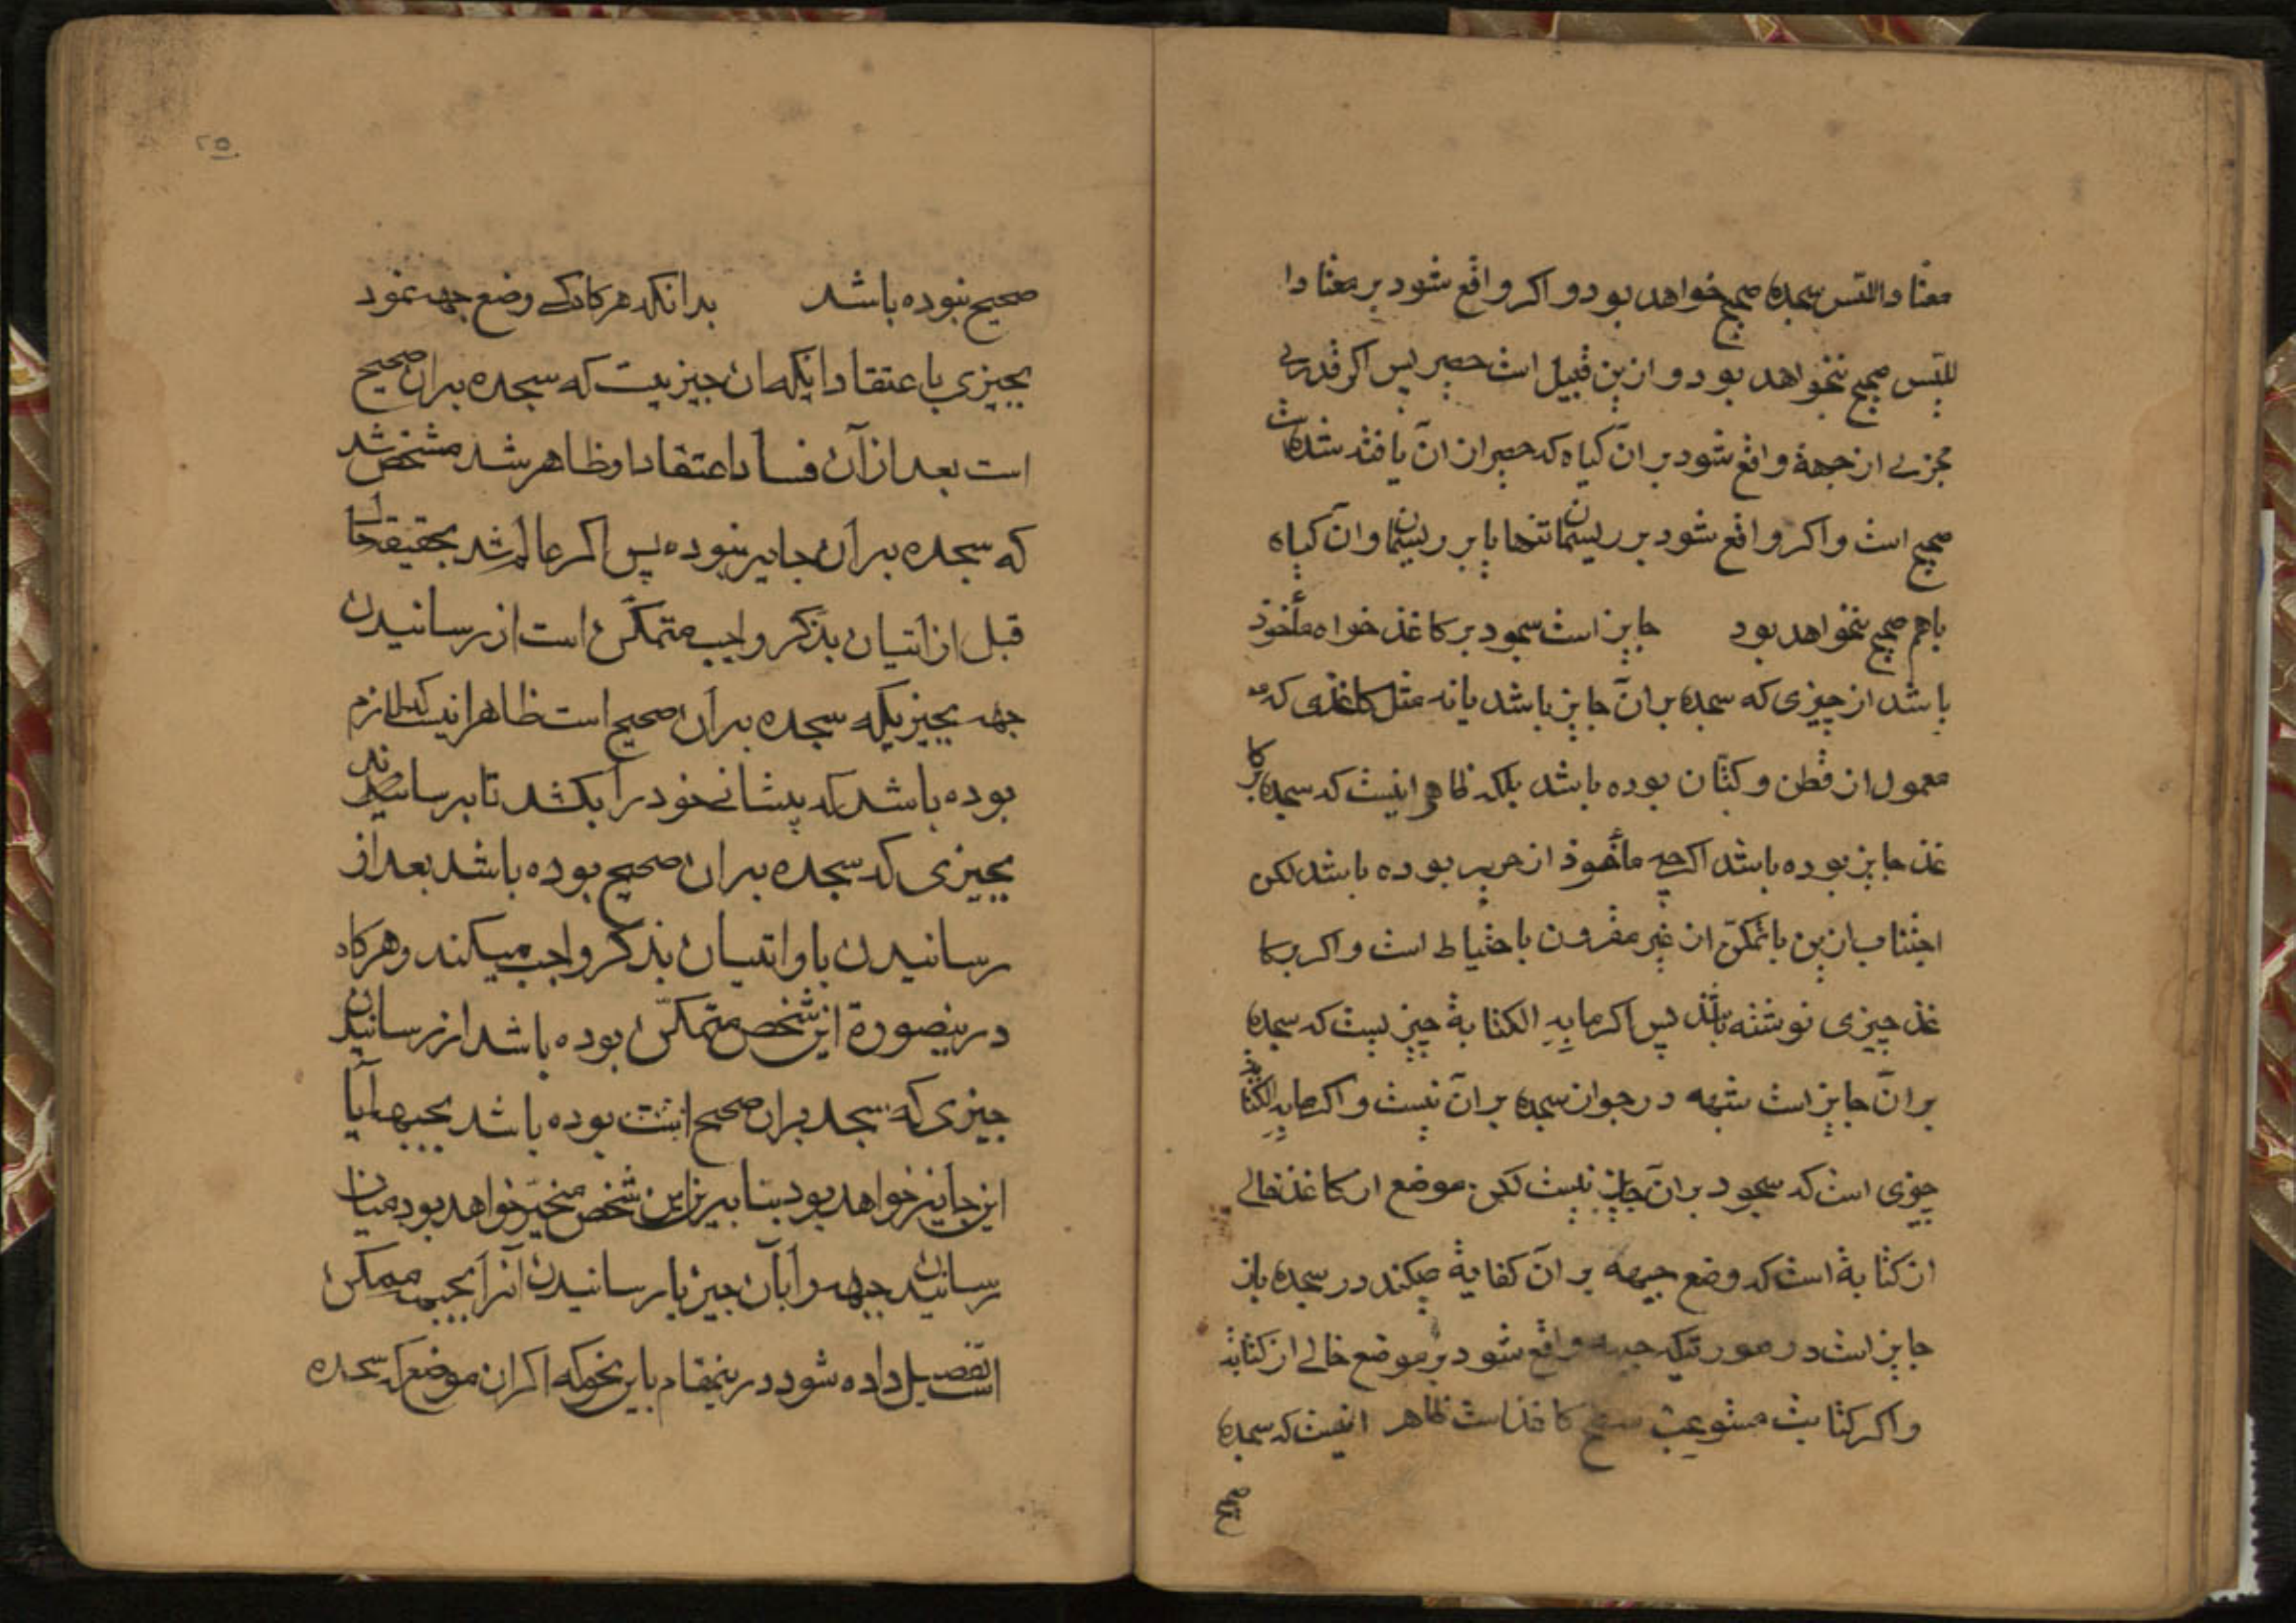 معتاد اللبس سجده صحیح خواهد بود و اکر واقع شود بر معتاد ا
للبس صحیح نخواهد بود و ازین قبیل است حصیر پس اکر قدری
مجزی از جبهة واقع شود بر ان کیاه که حصیر از ان یافته شده است
صحیح است و اکر واقع شود بر ریسمان تنها یا بر ریسمان و ان کیاه
باهم صحیح نخواهد بود جایز است سجود بر کاغذ خواه مأخوذ
باشد از چیزی که سجده بر ان جایز باشد یا نه مثل کاغذی که
معمول از قطن و کتان بوده باشد بلکه ظاهر اینست که سجده بر کا
غذ جایز بوده باشد اکرچه مأخوذ از حریر بوده باشد لکن
اجتناب ازین با تمکن از غیر مقرون باحتیاط است و اکر بر کا
غذ چیزی نوشته باشد پس اکر ما به الکتابة چیزیست که سجده
بر ان جایز است شبهه در جواز سجده بر ان نیست و اکر ما به الکتابة
چیزی است که سجود بر ان جایز نیست لکن موضع از کاغذ خالی
از کتابة است که وضع جبهه بر ان کفایة میکند در سجده باز
جایز است در صورتیکه جبهه واقع شود بر موضع خالی از کتابة
و اکر کتابت مستوعب سطح کاغذ است ظاهر اینست که سجده
صحیح
۲۵
صحیح نبوده باشد بدانکه هرکاه کسی وضع جبهه نمود
بچیزی باعتقاد اینکه ان چیزیست که سجده بر ان صحیح
است بعد از آن فساد اعتقاد او ظاهر شد مشخص شد
که سجده بر ان جایز نبوده پس اکر عالم شد بحقیقة حال
قبل از اتیان بذکر واجب متمکن است از رسانیدن
جبهه بچیزیکه سجده بر ان صحیح است ظاهر اینست که لازم
بوده باشد که پیشانی خود را بکشد تا برساند
بچیزی که سجده بر ان صحیح بوده باشد بعد از
رسانیدن باو اتیان بذکر واجب میکند و هرکاه
درینصورة این شخص متمکن بوده باشد از رسانیدن
چیزی که سجده بر ان صحیح است بوده باشد بجبهه آیا
این جایز خواهد بود بنا برین این شخص مخیر خواهد بود میان
رسانیدن جبهه را بآن چیز یا رسانیدن آنرا بجبهه ممکن
است تفصیل داده شود درینمقام باین نحو که اکر ان موضع که سجده